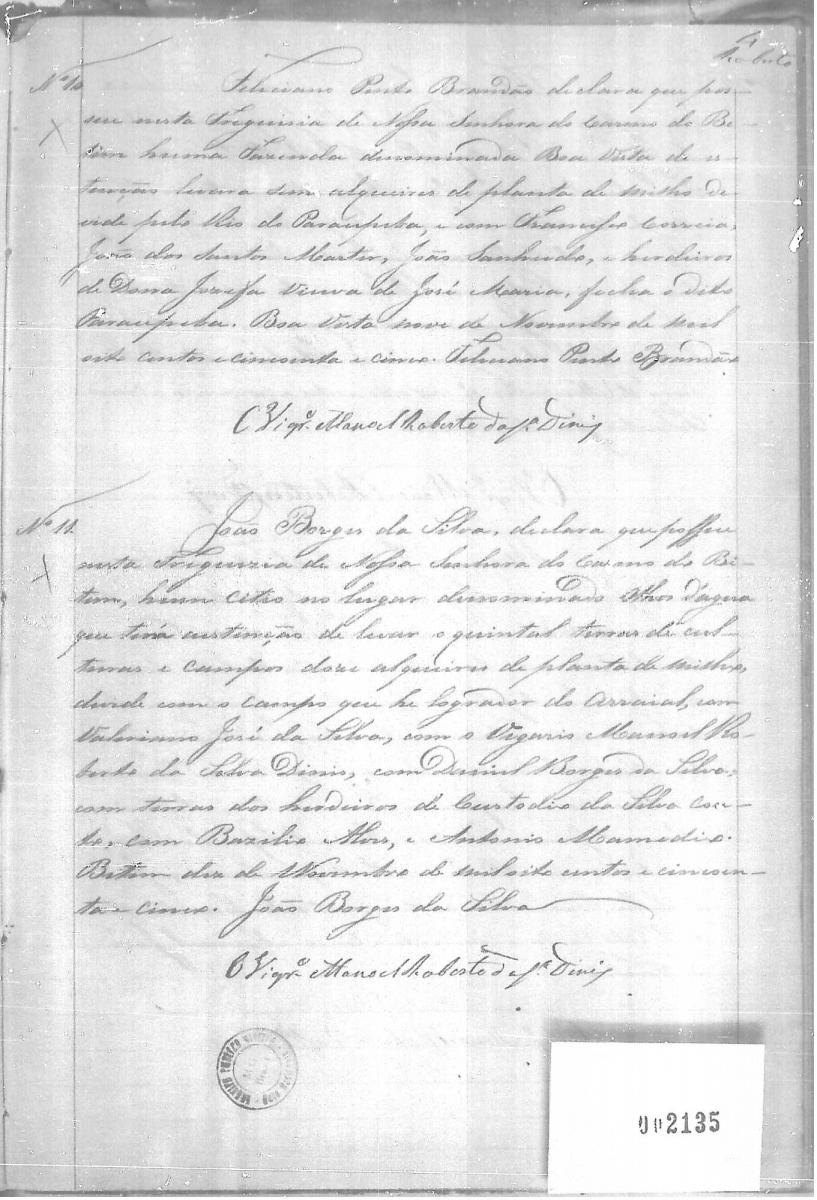 4
Roberto
Nº 10 Feliciano Pinto Brandão declara que pos-
sue nesta Freguisia de Nossa Senhora do Carmo do Be-
tim huma Fazenda denominada Boa Vista de es-
tenção levara sem alqueires de planta de milho de-
vide pelo Rio do Paraupeba, e com Correia,
João dos Santos João Sanhudo, e herdeiros
de Dona Jozefa Viuva de José Maria, fecha o dito
Paraupeba. Boa Vista nove de Novembro de mil
oito centos e cincoenta e cinco. Feliciano Pinto Brandão
O Vigrº Manoel Roberto da Sª Diniz
Nº 11. João Borges da Silva, declara que possue
nesta Freguezia de Nossa Senhora do Carmo do Be-
tim, hum citio no lugar denominado Olhos d'agua
que terá de levar o quintal terras de cul-
turas e campos doze alqueires de planta de milho,
devide com o campo que he logrador do Arraial, com
Valeriano José da Silva, com o Vigario Manoel Ro-
berto da Silva Dinis, com Daniel Borges da Silva,
com terras dos herdeiros de Custodio da Silva Cou-
to, com Bazilio Alves, e Antonio Mamedio.
Betim dez de Novembro de mil oito centos e cincoen-
ta e cinco. João Borges da Silva
O Vigrº Manoel Roberto da Sª Diniz
ARCHIVO PUBLICO MINEIRO
002135